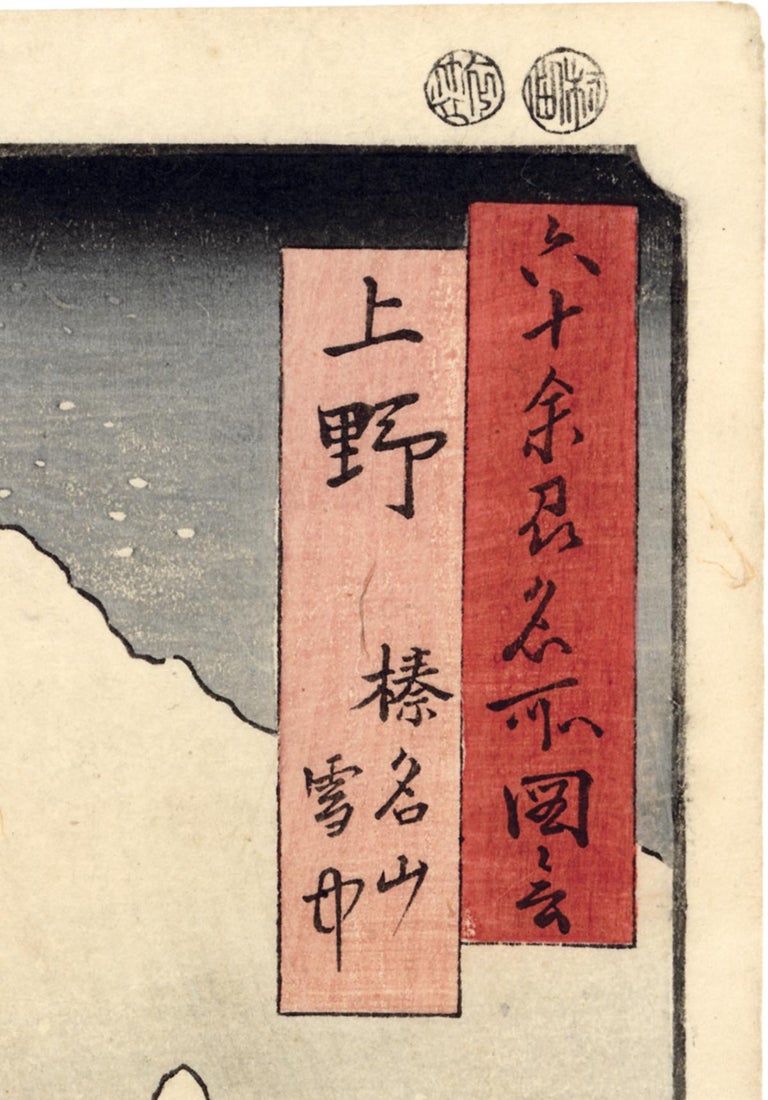 六十余州名所図会
上野
榛名山
雪中